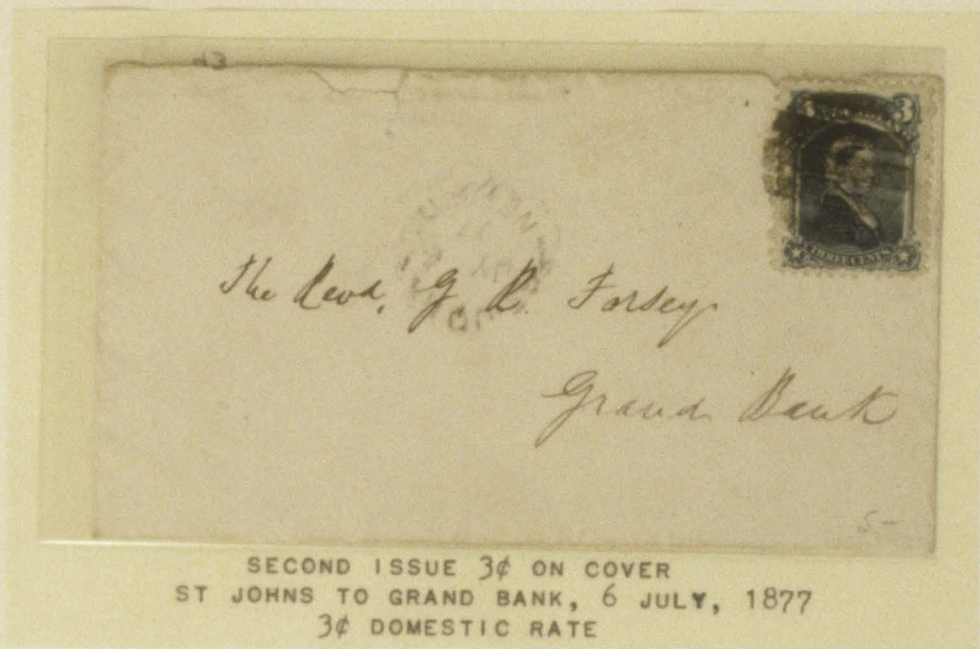 3
THREE CENTS
The Revd. G. R. Forsey
Grand Bank
5-
SECOND ISSUE 3¢ ON COVER
ST JOHNS TO GRAND BANK, 6 JULY, 1877
3¢ DOMESTIC RATE